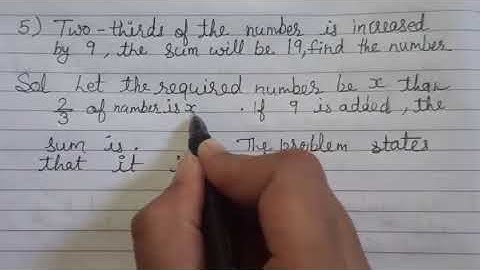 5) Two-thirds of the number is increased
by 9, the sum will be 19, find the number
Sol Let the required number be x then
2/3 of number is x . If 9 is added, the
sum is. The problem states
that it i